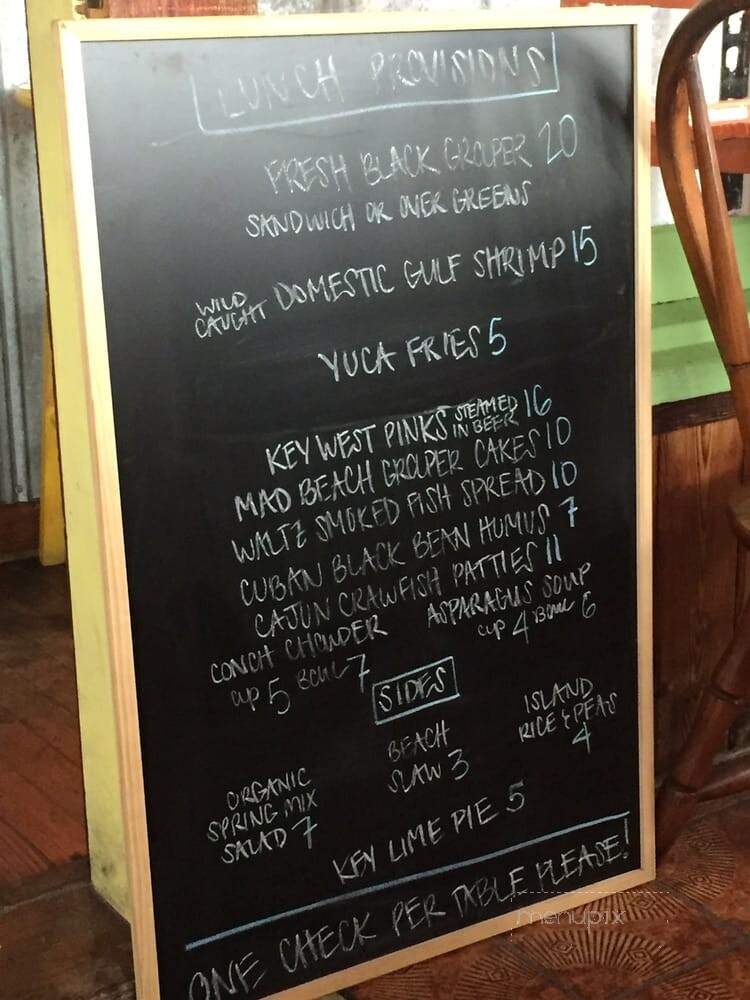 LUNCH PROVISIONS
FRESH BLACK GROUPER 20
SANDWICH OR OVER GREENS
WILD CAUGHT DOMESTIC GULF SHRIMP 15
YUCA FRIES 5
KEY WEST PINKS STEAMED IN BEER 16
MAD BEACH GROUPER CAKES 10
WALTZ SMOKED FISH SPREAD 10
CUBAN BLACK BEAN HUMUS 7
CAJUN CRAWFISH PATTIES 11
CONCH CHOWDER
CUP 5 BOWL 7
ASPARAGUS SOUP
CUP 4 BOWL 6
SIDES
ORGANIC
SPRING MIX
SALAD 7
BEACH
SLAW 3
ISLAND
RICE & PEAS
4
KEY LIME PIE 5
ONE CHECK PER TABLE PLEASE!
menupix